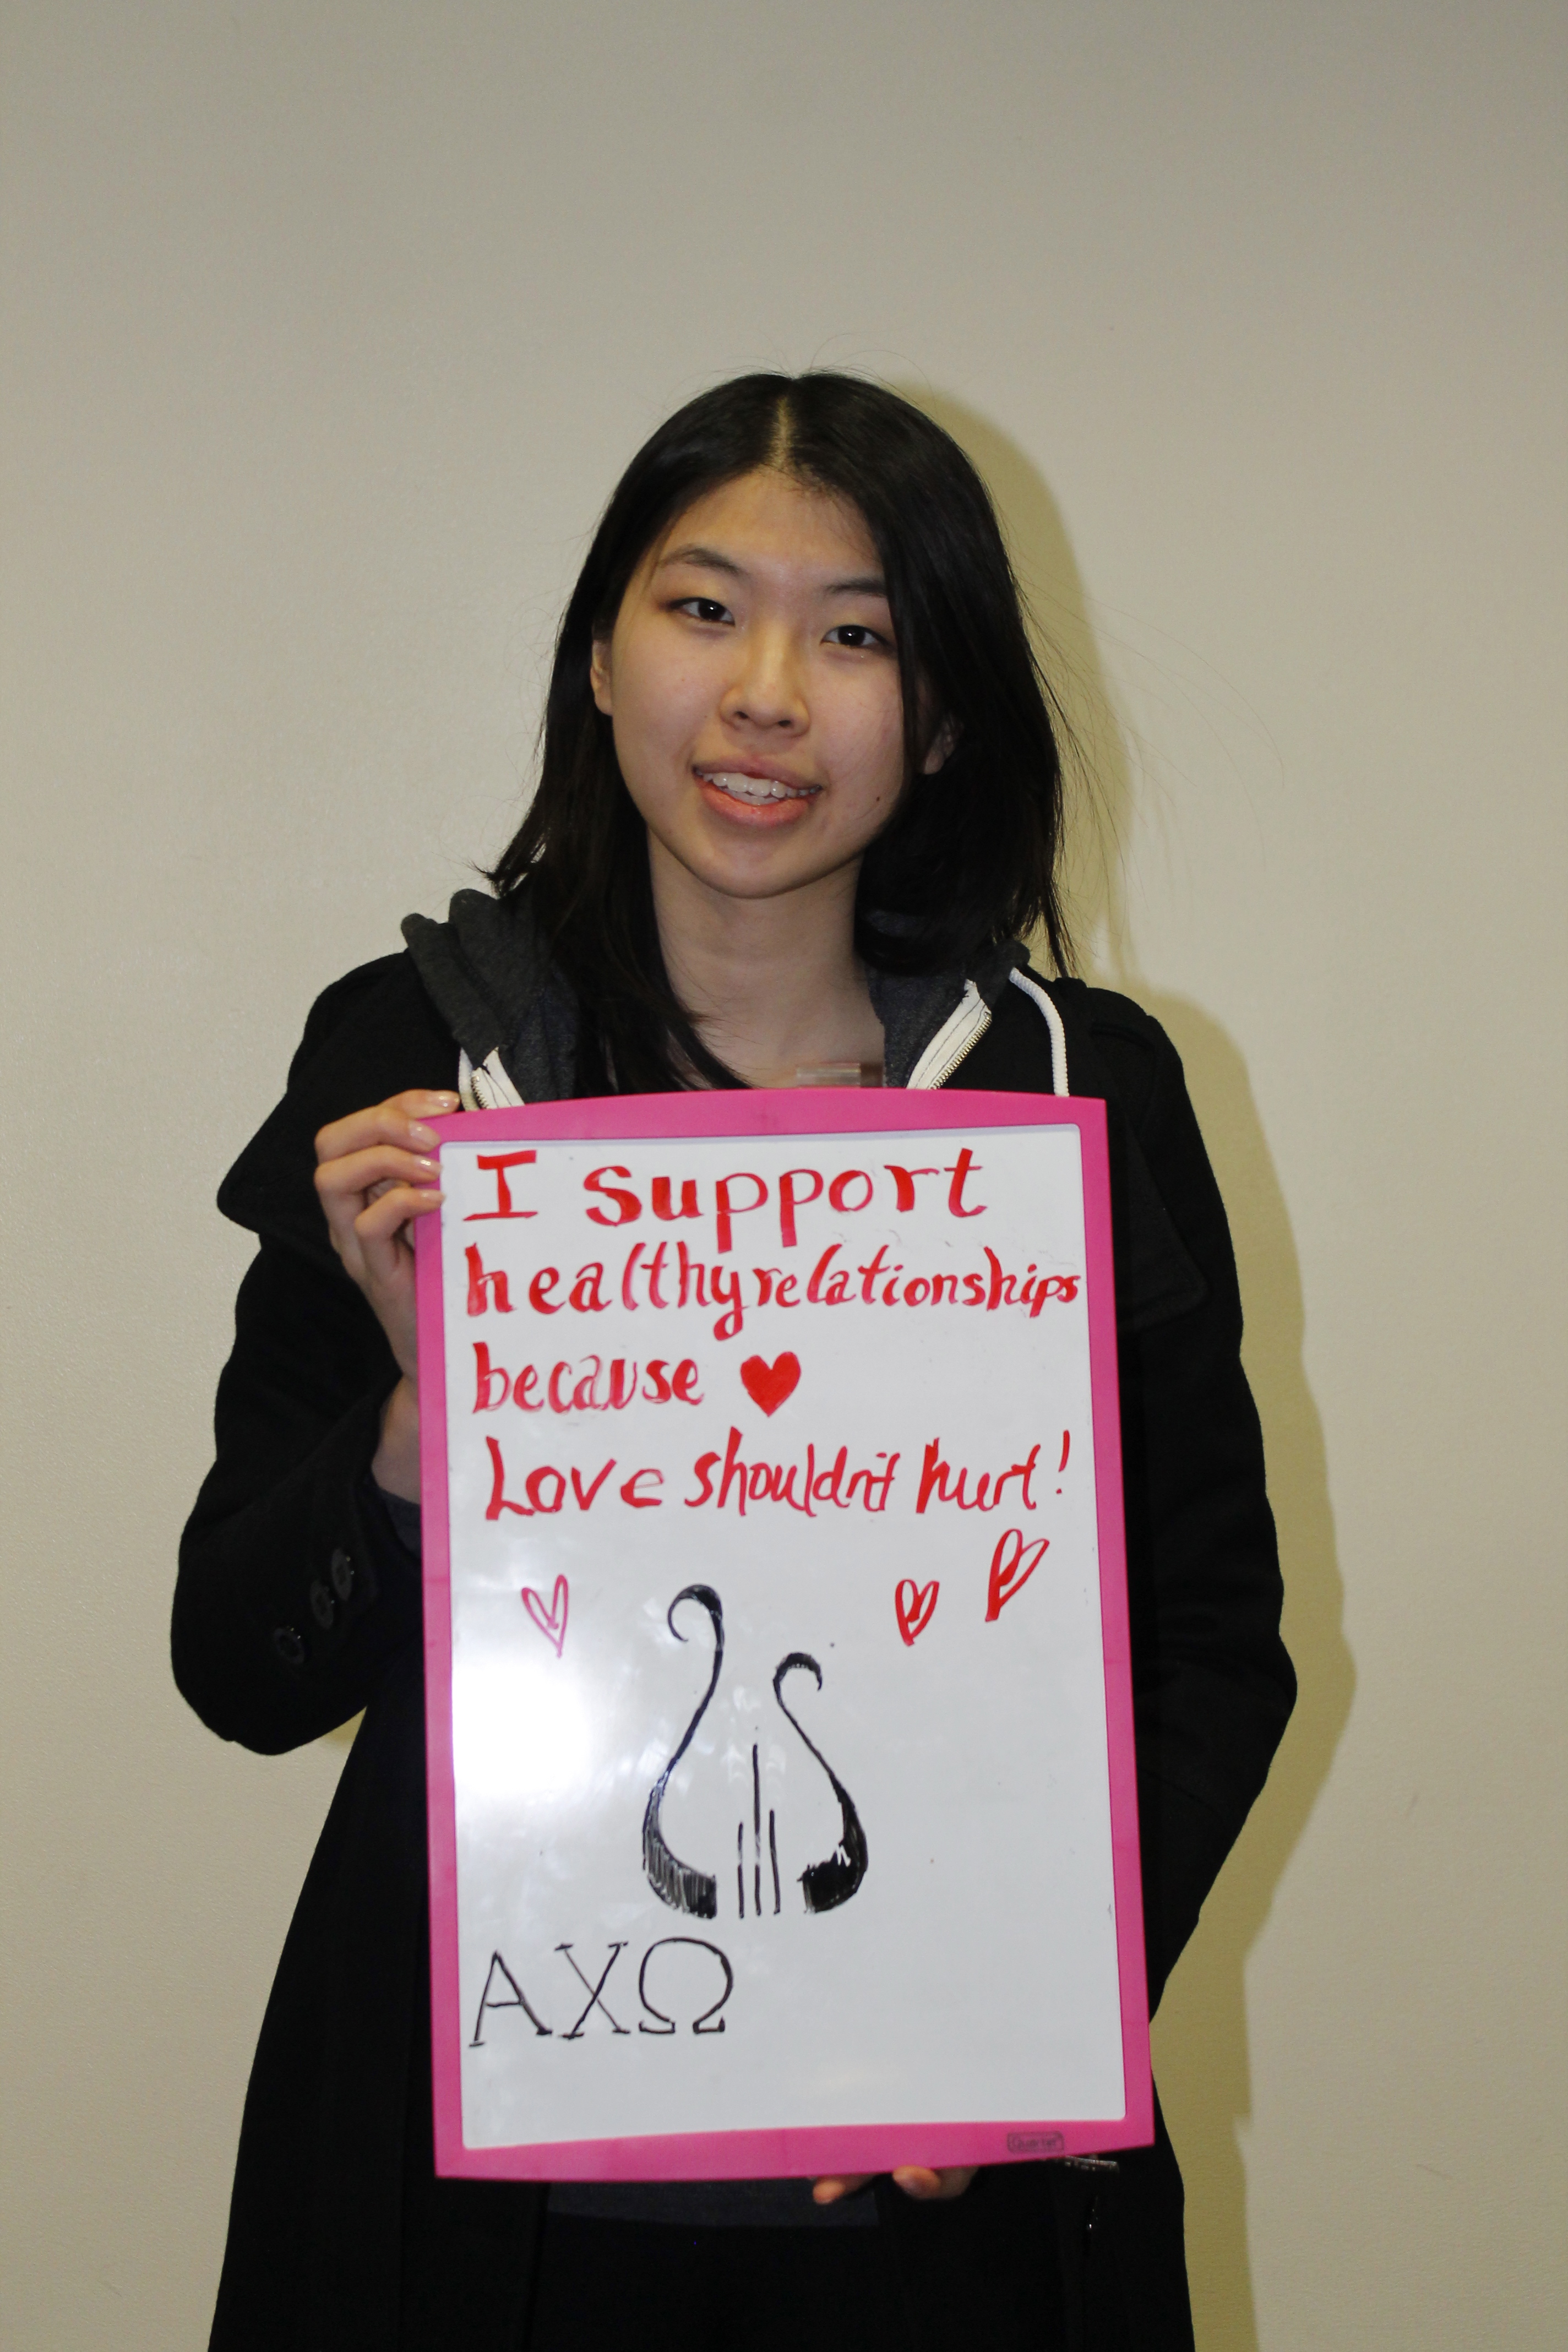 I support
healthy relationships
because ♥
Love shouldn't hurt!
ΑΧΩ
Quartet